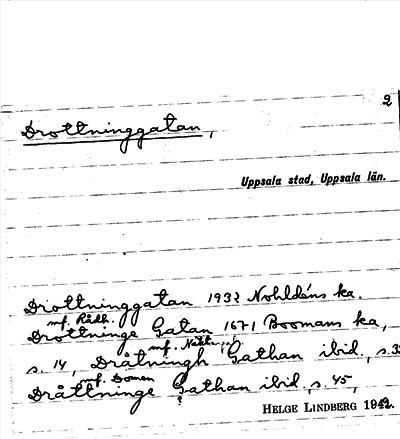 2
Drottninggatan,
Uppsala stad, Uppsala län.
Drottninggatan 1932 Nohldéns ka.
mf. Rådh.
Drottninge Gatan 1671 Boomans ka,
mf.
s. 14, Dråtningh Gathan ibid., s.
mf. Domen
Dråttninge Gathan ibid., s. 45,
HELGE LINDBERG 1942.